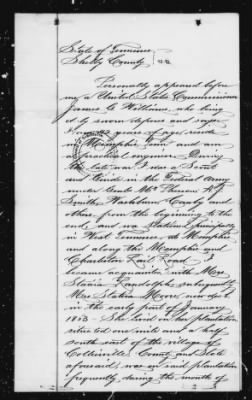 State of Tennessee
Shelby County ss
Personally appeared before
me a United States Commissioner
James C. Williams, who being
duly sworn deposes and says
I am years of age, reside
in Memphis Tenn and am
a practical engineer. During
the late war I was a Scout
and Guide in the Federal Army
under Genls McPherson A. J.
Smith, Washburn Canby and
others, from the beginning to the
end, and was stationed principally
in West Tennessee, at Memphis
and along the Memphis and
Charleston Rail Road. I
became acquainted with Mrs
Statira Randolph, subsequently
Mrs Statira Moore, now dec'd
in the early part of January
1863. She lived on the plantation
situated one mile and a half
south east of the village of
Collierville County and State
aforesaid, was on said plantation
frequently during the month of